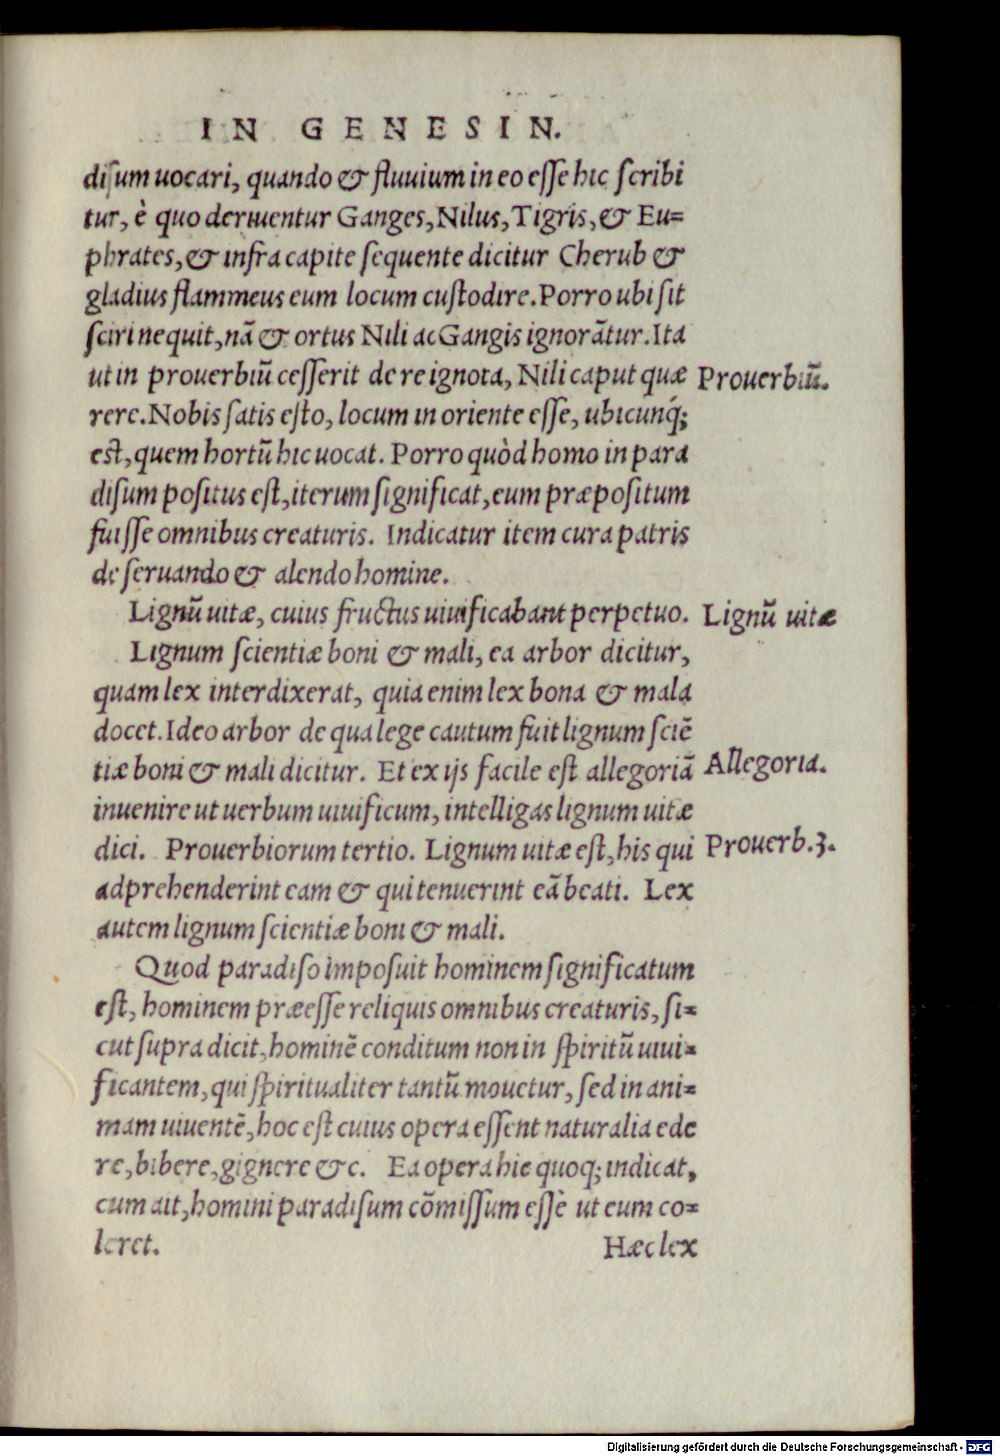 IN GENESIN.
diſum uocari, quando & fluuium in eo eſſe hic ſcribi
tur, è quo deriuentur Ganges, Nilus, Tigris, & Eu=
phrates, & infra capite ſequente dicitur Cherub &
gladius flammeus eum locum cuſtodire. Porro ubi ſit
ſciri nequit, nã & ortus Nili ac Gangis ignorãtur. Ita
ut in prouerbiũ ceſſerit de re ignota, Nili caput quæ
Prouerbiũ.
rere. Nobis ſatis eſto, locum in oriente eſſe, ubicunq́;
eſt, quem hortũ hic uocat. Porro quòd homo in para
diſum poſitus eſt, iterum ſignificat, eum præpoſitum
fuiſſe omnibus creaturis. Indicatur item cura patris
de ſeruando & alendo homine.
Lignũ uitæ, cuius fructus uiuificabant perpetuo.
Lignũ uitæ
Lignum ſcientiæ boni & mali, ea arbor dicitur,
quam lex interdixerat, quia enim lex bona & mala
docet. Ideo arbor de qua lege cautum fuit lignum ſciẽ
tiæ boni & mali dicitur. Et ex ijs facile eſt allegoriã
Allegoria.
inuenire ut uerbum uiuificum, intelligas lignum uitæ
dici. Prouerbiorum tertio. Lignum uitæ eſt, his qui
Prouerb. 3.
adprehenderint eam & qui tenuerint eã beati. Lex
autem lignum ſcientiæ boni & mali.
Quod paradiſo impoſuit hominem ſignificatum
eſt, hominem præeſſe reliquis omnibus creaturis, ſi=
cut ſupra dicit, hominẽ conditum non in ſpiritũ uiui=
ficantem, qui ſpiritualiter tantũ mouetur, ſed in ani=
mam uiuentẽ, hoc eſt cuius opera eſſent naturalia ede
re, bibere, gignere &c. Ea opera hic quoq; indicat,
cum ait, homini paradiſum cõmiſſum eſſè ut eum co=
leret.
Hæc lex
Digitalisierung gefördert durch die Deutsche Forschungsgemeinschaft - DFG